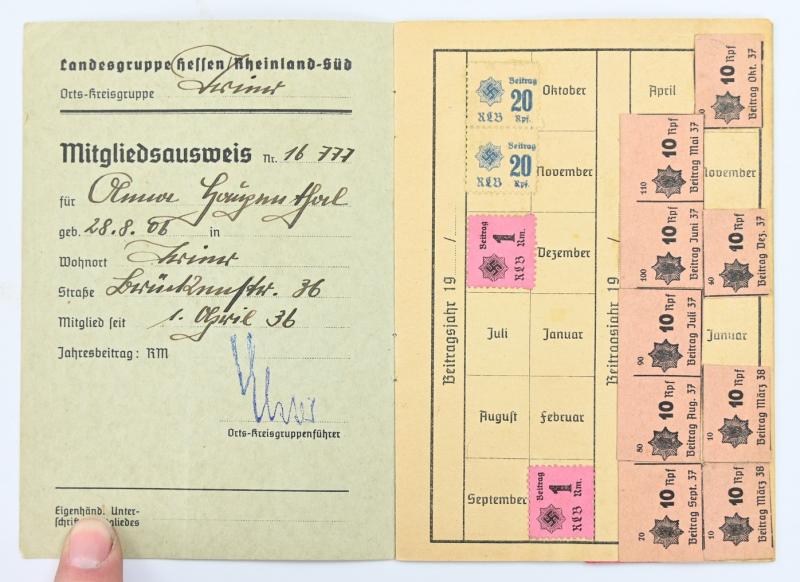 Landesgruppe Hessen/Rheinland-Süd
Orts-Kreisgruppe Trier
Mitgliedsausweis Nr. 16 777
für Anna Haupenthal
geb. 28.8.06 in
Wohnort Trier
Straße Brückenstr. 36
Mitglied seit 1. April 36
Jahresbeitrag: RM
Orts-Kreisgruppenführer
Eigenhänd. Unter-
schrift
Beitragsjahr 19 /
Beitrag
20
RLB Rpf.
Beitrag
20
RLB Rpf.
Beitrag
1
RLB Rm.
Juli
August
September
Oktober
November
Dezember
Januar
Februar
Beitrag
1
RLB Rm.
Beitragsjahr 19 /
April
November
Januar
10 Rpf
Beitrag Okt. 37
110
10 Rpf
Beitrag Mai 37
100
10 Rpf
Beitrag Juni 37
40
10 Rpf
Beitrag Dez. 37
90
10 Rpf
Beitrag Juli 37
80
10 Rpf
Beitrag Aug. 37
10
10 Rpf
Beitrag März 38
70
10 Rpf
Beitrag Sept. 37
10
10 Rpf
Beitrag März 38